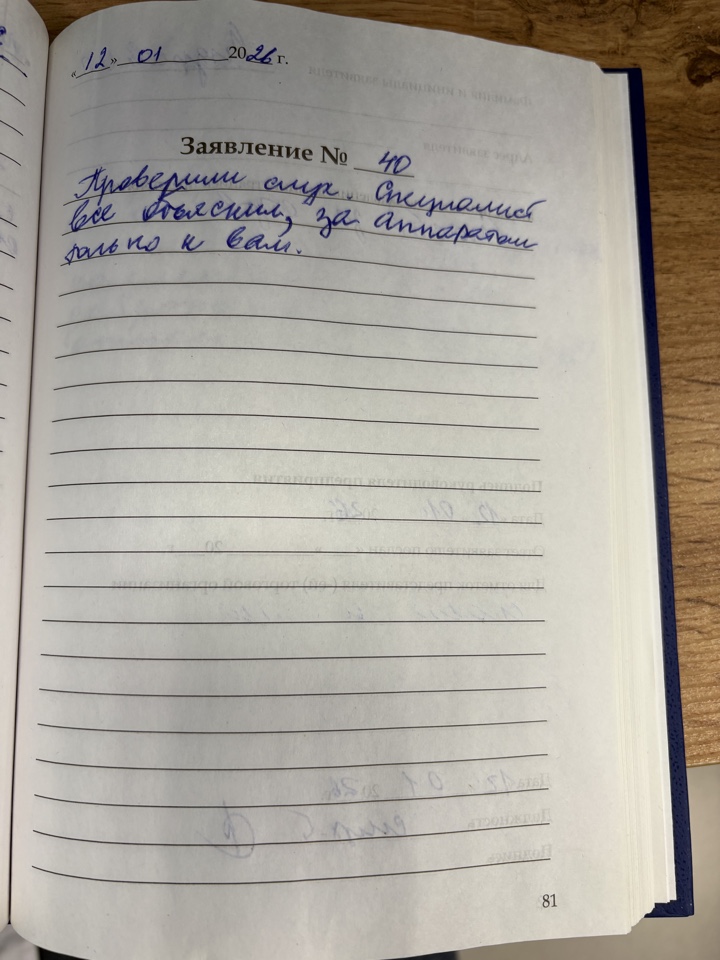 «12» 01 2026 г.
Заявление № 40
Проверили слух. Специалист
все объяснил, за аппаратом
только к вам.
81